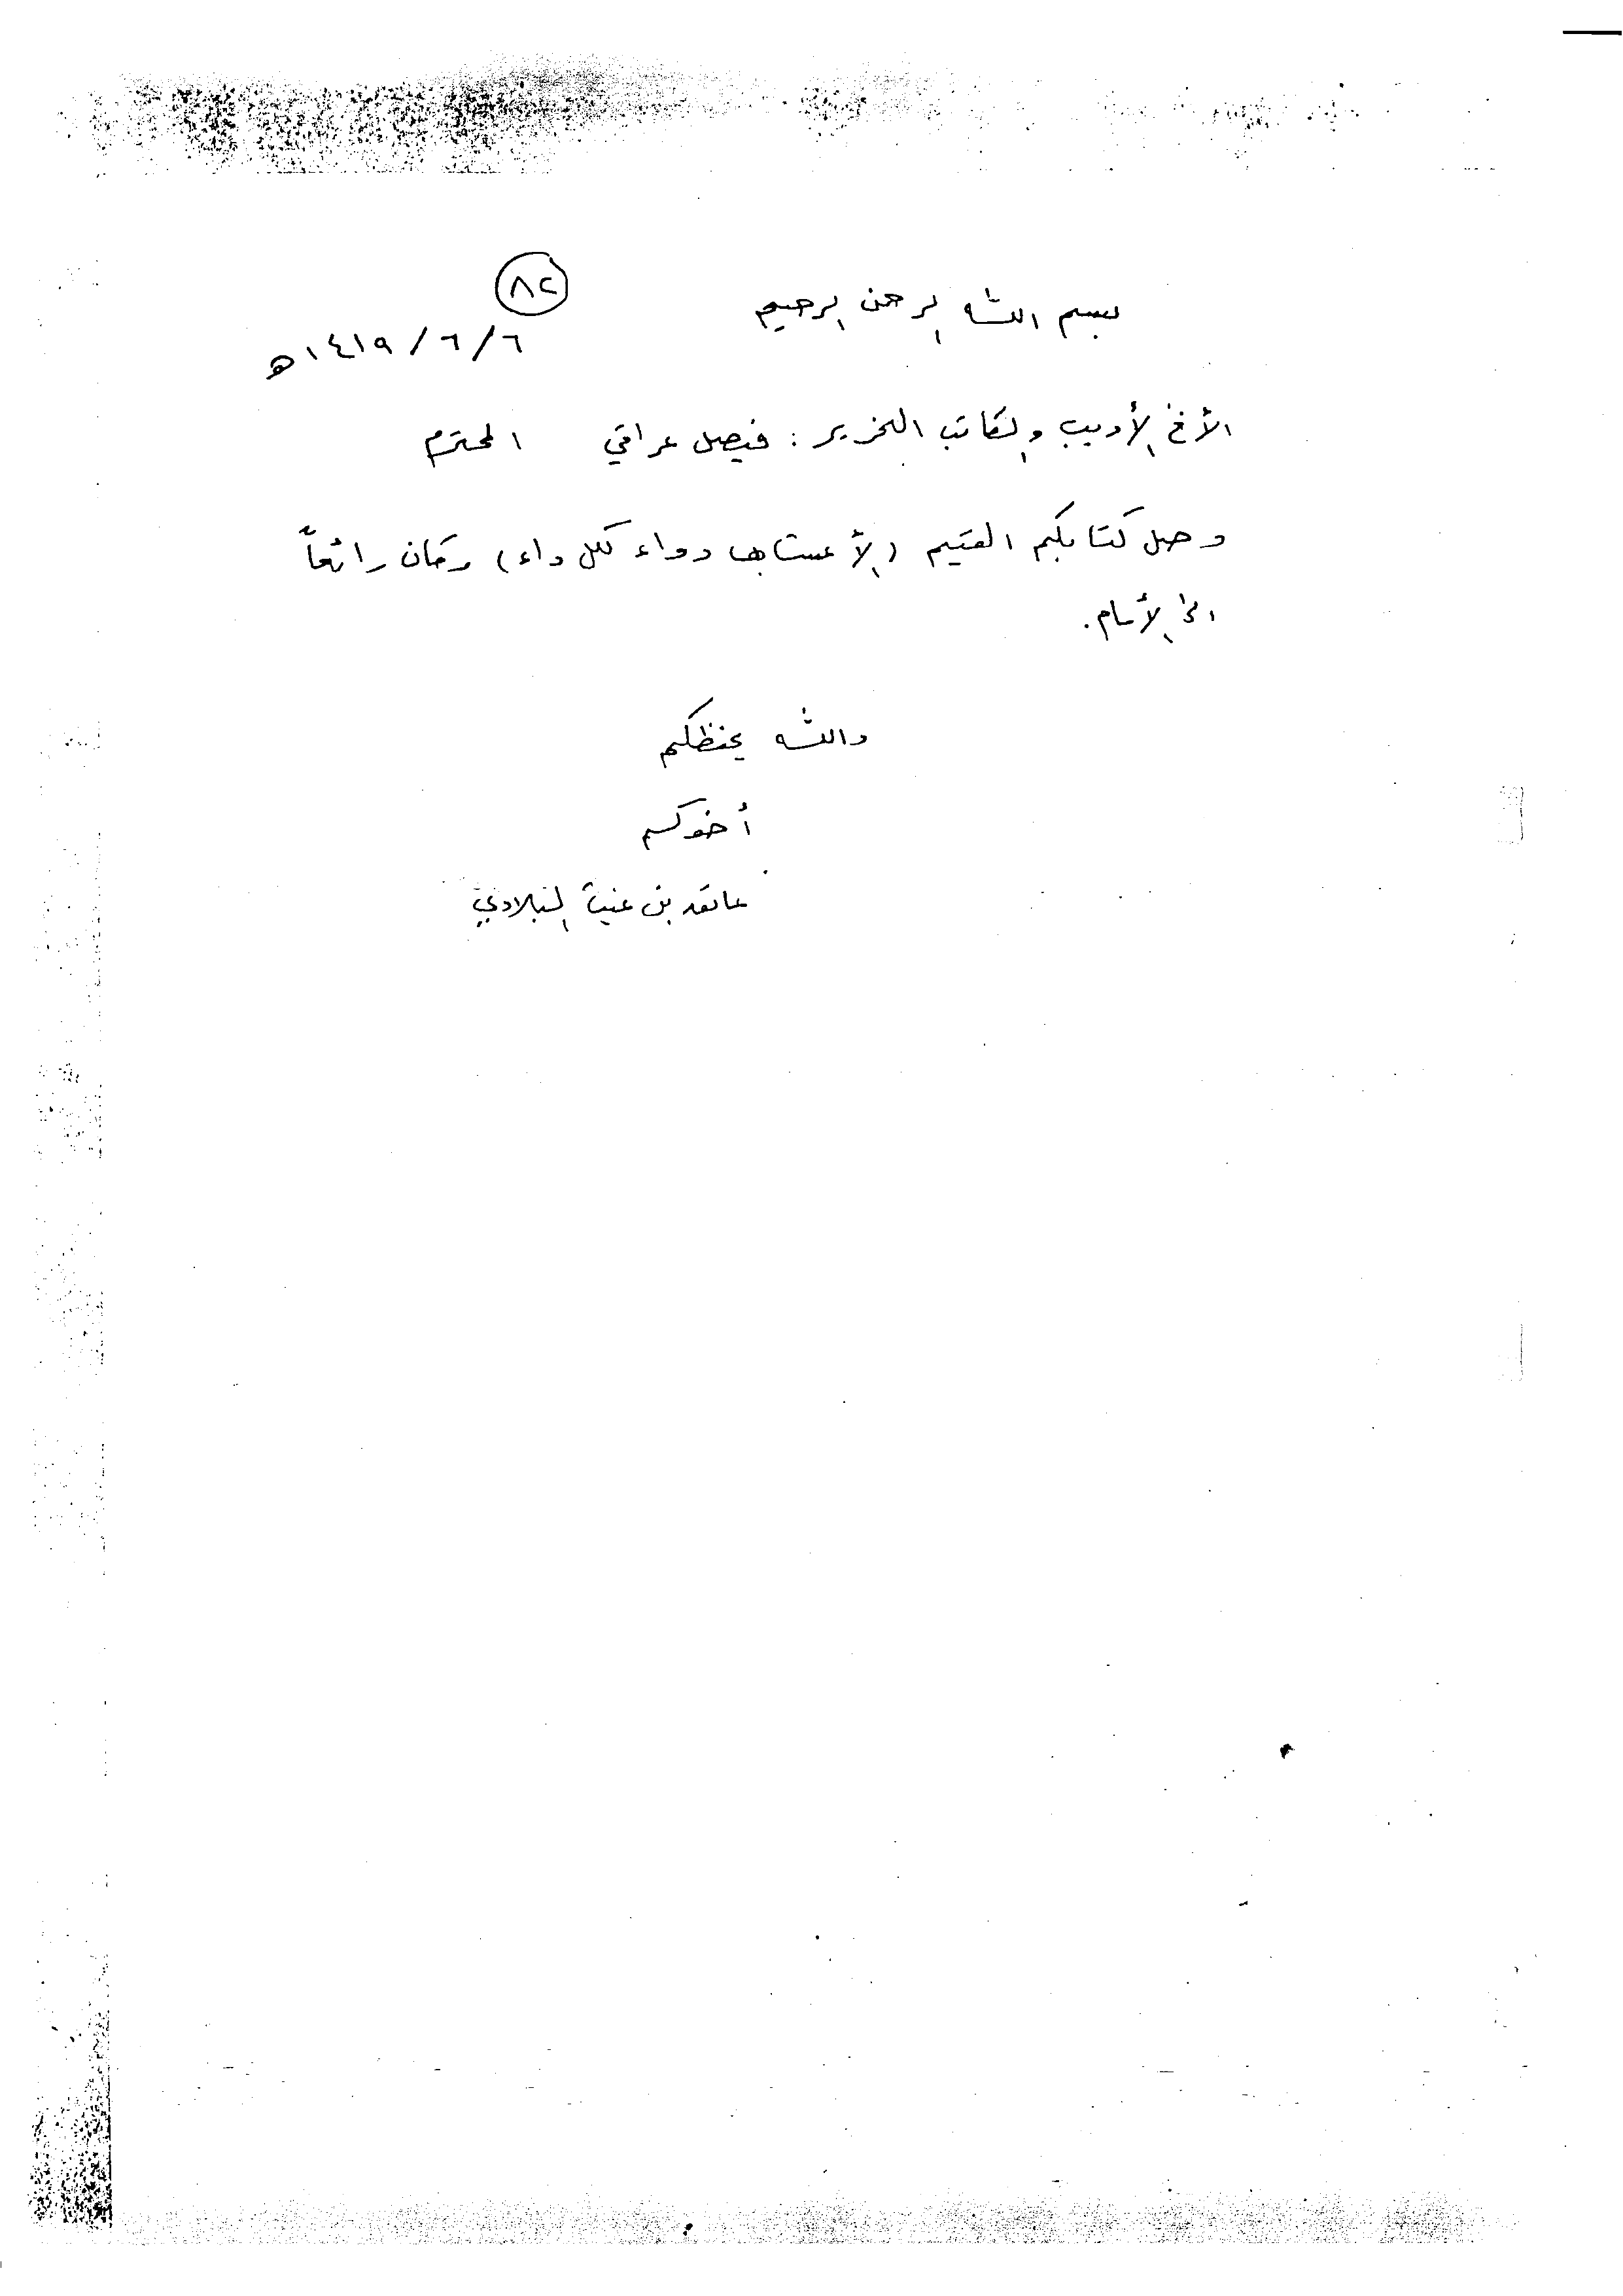 ٨٢
بسم الله الرحمن الرحيم
٦/٦/١٤١٩هـ
الأخ الأديب والكاتب الغزير: فيصل عراقي المحترم
وصل كتابكم القيم (الأعشاب دواء لكل داء) وكان رائعاً
إلى الأمام.
والله يحفظكم
أخوكم
عاتق بن غيث البلادي